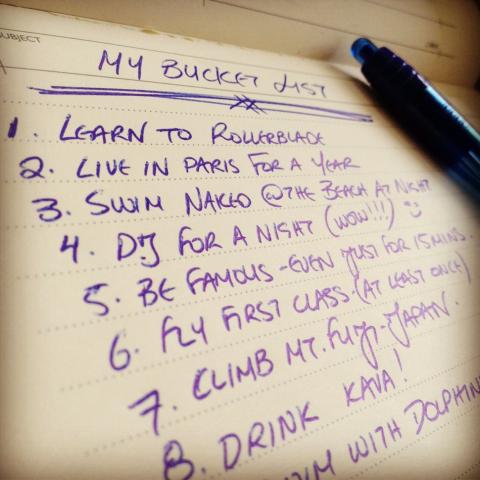 SUBJECT
MY BUCKET LIST
1. LEARN TO ROLLERBLADE
2. LIVE IN PARIS FOR A YEAR
3. SWIM NAKED @ THE BEACH AT NIGHT
4. DJ FOR A NIGHT (WOW!!!) ☺
5. BE FAMOUS - EVEN JUST FOR 15 MINS.
6. FLY FIRST CLASS. (AT LEAST ONCE)
7. CLIMB MT. FUJI - JAPAN.
8. DRINK KAVA!
WITH DOLPHIN